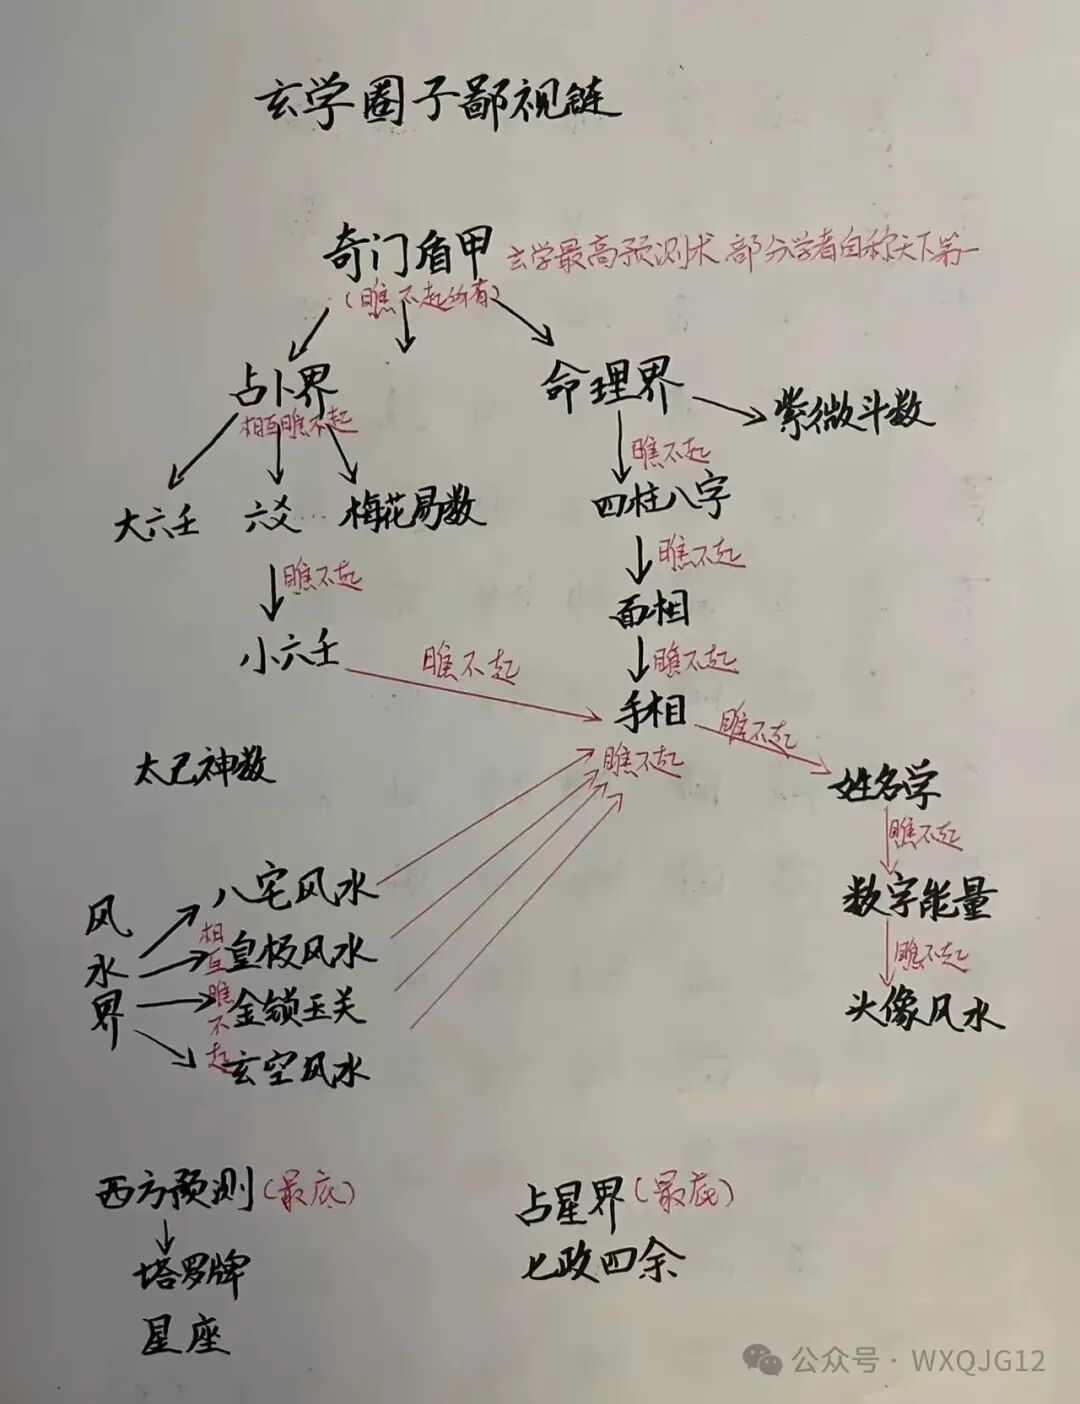 玄学圈子鄙视链
奇门盾甲 玄学最高预测术 部分学者自称天下第一
(瞧不起所有)
占卜界
相互瞧不起
命理界
紫微斗数
瞧不起
大六壬 六爻 梅花易数
四柱八字
瞧不起
瞧不起
面相
小六壬
瞧不起
瞧不起
手相
瞧不起
瞧不起
太乙神数
姓名学
瞧不起
风水界
相互瞧不起
八宅风水
皇极风水
金锁玉关
玄空风水
数字能量
瞧不起
头像风水
西方预测(最底)
塔罗牌
星座
占星界(最底)
七政四余
公众号·WXQJG12